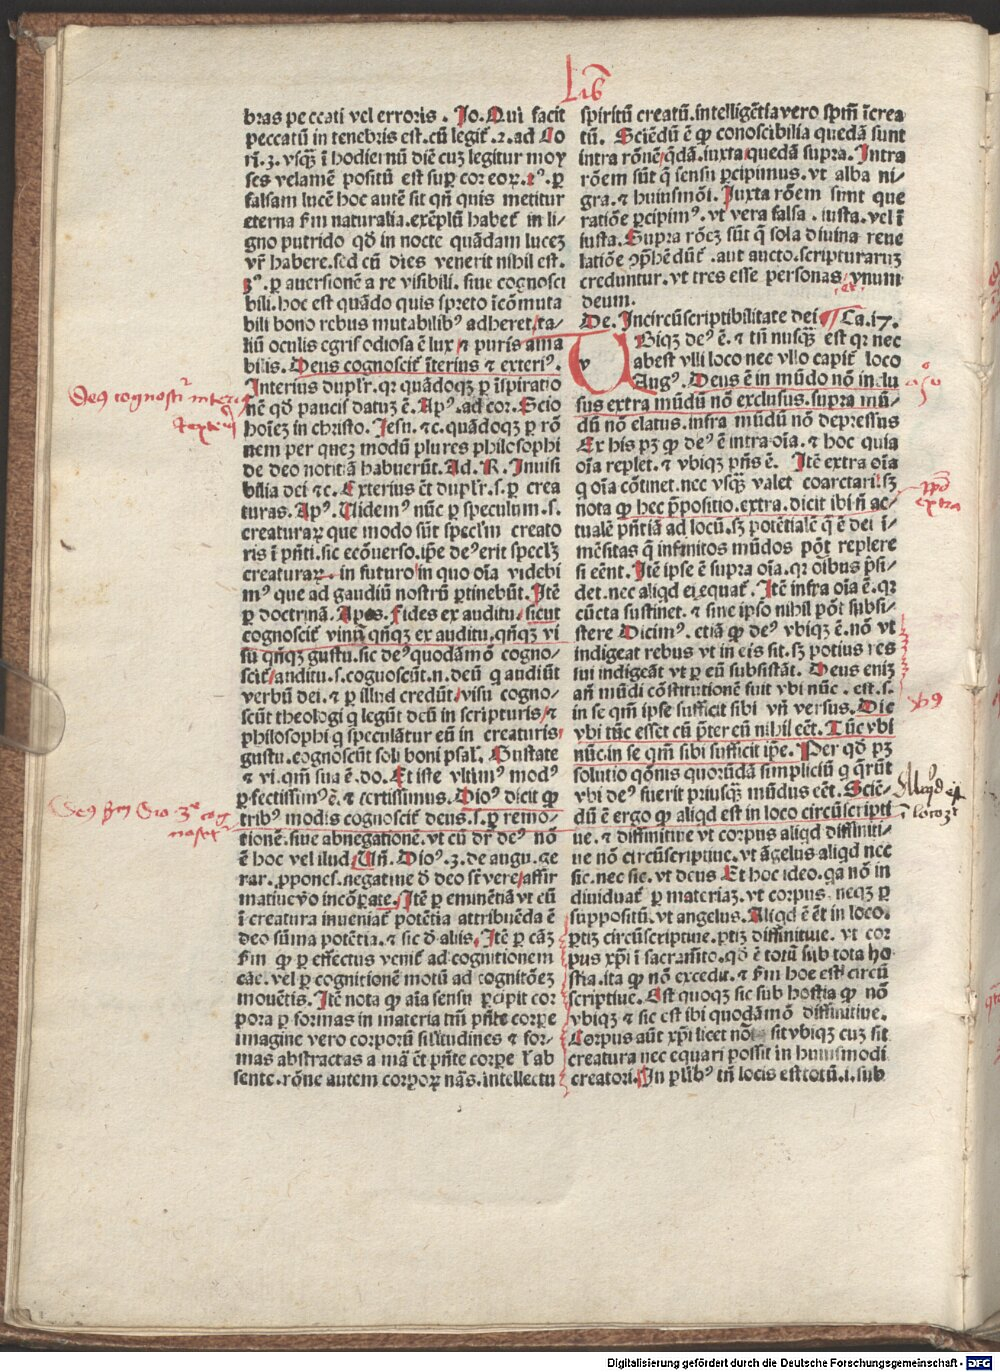 Lib
bras peccati vel erroris . Jo. Qui facit
peccatū in tenebris est. cū legit̄ .2. ad Co
rī.3. vsqꝫ ī hodiernū diē cuꝫ legitur moy
ses velamē positū est sup̱ cor eoꝝ. 2ꝰ. ꝑ
falsam lucē hoc autē sit qn̄ quis metitur
eterna ẜm naturalia. exēplū habet̄ in li-
gno putrido qd̄ in nocte quādam luceꝫ
vr̄ habere. sed cū dies venerit nihil est.
3ꝰ. ꝑ auersionē a re visibili. siue cognosci
bili. hoc est quādo quis spreto īcōmuta
bili bono rebus mutabilibꝰ adheret/ ta-
liū oculis egris odiosa ē lux/ ⁊ puris ama
bilis. Deus cognoscit̄ īterius ⁊ exteriꝰ.
Interius dupl'r. qꝛ quādoqꝫ ꝑ īspiratio
nē qd̄ paucis datuꝫ ē. Apꝰ. ad cor. Scio
hoīeꝫ in christo. Jesu. ⁊c. quādoqꝫ ꝑ rō
nem per queꝫ modū plures philosophi
de deo notitiā habuerūt. Ad. R. Inuisi
bilia dei ⁊c. Exterius ēt dupl'r. s. ꝑ crea
turas. Apꝰ. Uidemꝰ nūc ꝑ speculum. s.
creaturaꝝ que modo sūt specl'm creato
ris ī pn̄ti. sic ecōuerso. ip̄e deꝰ erit specl'ꝫ
creaturaꝝ. in futuro/ in quo oīa videbi
mꝰ que ad gaudiū nostrū ꝑtinebūt. Itē
ꝑ doctrinā. Apos. Fides ex auditu. sicut
cognoscit̄ vinū qn̄qꝫ ex auditu. qn̄qꝫ vi
sū qn̄qꝫ gustu. sic deꝰ quodāmō cogno-
scit̄/ auditu. s. cognoscūt. n. deū q audiūt
verbū dei. ⁊ ꝑ illud credūt/ visu cogno-
scūt theologi q legūt deū in scripturis/ ⁊
philosophi q speculātur eū in creaturis/
gustu. cognoscūt soli boni psal'. Gustate
⁊ vi. qm̄ sua ē. do. Et iste vltimꝰ modꝰ
ꝑfectissimꝰ ē. ⁊ certissimus. Dioꝰ dicit ꝙ
tribꝰ modis cognoscit̄ deus. s. ꝑ remo-
tionē. siue abnegationē. vt cū dr̄ deꝰ nō
ē hoc vel illud. Un̄. Dioꝰ. 3. de angu. ge
rar. ꝓpones. negatiue ð deo sūt vere/ affir
matiue vo incōꝑate. Itē ꝑ eminētiā vt cū
ī creatura inueniat̄ potētia attribuēda ē
deo sūma potētia. ⁊ sic ð aliis. Itē ꝑ cāꝫ
ẜm ꝙ ꝑ effectus venit̄ ad cognitionem
cāe. vel ꝑ cognitionē motū ad cognitōeꝫ
mouētis. Itē nota ꝙ aīa sensu ꝑcipit cor
pora ꝑ formas in materia tm̄ pn̄te corpe
imagine vero corporū silitudines ⁊ for-
mas abstractas a mā ēt pn̄te corpe l' ab
sente. rōne autem corpoꝝ nās. intellectu
spiritū creatū. intelligētia vero spm̄ īcrea
tū. Sciēdū ē ꝙ conoscibilia quedā sunt
intra rōnē/ qdā. iuxta/ quedā supra. Intra
rōem sūt q̄ sensu ꝑcipimus. vt alba ni-
gra. ⁊ huiusmōi. Juxta rōem sunt que
ratiōe ꝑcipimꝰ. vt vera falsa . iusta. vel ī
iusta. Supra rōeꝫ sūt q̄ sola diuina reue
latiōe ꝯp̄hēdūt̄ . aut aucto. scripturaruꝫ
creduntur. vt tres esse personas / vnum
et
deum.
De. Incircūscriptibilitate dei Ca.17.
Ubiqꝫ deꝰ ē. ⁊ tn̄ nusqꝫ est qꝛ nec
abest vlli loco nec vllo capit̄ loco
Augꝰ. Deus ē in mūdo nō inclu
sus extra mūdū nō exclusus. supra mū-
dū nō elatus. infra mūdū nō depressus
Ex his pꝫ ꝙ deꝰ ē intra oīa. ⁊ hoc quia
oīa replet. ⁊ vbiqꝫ pn̄s ē. Itē extra oīa
q oīa cōtinet. nec vsqꝫ valet coarctari. sꝫ
nota ꝙ hec p̄positio. extra. dicit ibi n̄ ac-
tualē pn̄tiā ad locū. sꝫ potētialē q̄ ē dei ī-
mēsitas q̄ infinitos mūdos pōt replere
si eēnt. Itē ipse ē supra oīa. qꝛ oībus p̄si-
det. nec aliqd ei equat̄. Itē infra oīa ē. qꝛ
cūcta sustinet. ⁊ sine ipso nihil pōt subsi-
stere Dicimꝰ. etiā ꝙ deꝰ vbiqꝫ ē. nō vt
indigeat rebus vt in eis sit. sꝫ potius res
sui indigeāt vt ꝑ eū subsistāt. Deus eniꝫ
an̄ mūdi cōstitutionē fuit vbi nūc . est. s.
in se qm̄ ipse sufficit sibi vn̄ versus. Dic
vbi tūc esset cū p̄ter eū nihil eēt. Tūc vbi
nūc. in se qm̄ sibi sufficit ip̄e. Per qd̄ pꝫ
solutio qōnis quorūdā simpliciū q q̄rūt
vbi deꝰ fuerit priusqꝫ mūdus eēt. Sciē-
dū ē ergo ꝙ aliqd est in loco circūscripti
ue. ⁊ diffinitiue vt corpus aliqd diffiniti-
ue nō circūscriptiue. vt āgelus aliqd nec
sic. nec sic. vt deus Et hoc ideo. qa nō in
diuiduat̄ ꝑ materiaꝫ. vt corpus. neqꝫ ꝑ
suppositū. vt angelus. Aliqd ē ēt in loco.
ꝑtiꝫ circūscriptiue. ꝑtiꝫ diffinitiue. vt cor
pus xp̄i ī sacramēto. qd̄ ē totū sub tota ho
stia. ita ꝙ nō excedit. ⁊ ẜm hoc est circū
scriptiue. Est quoqꝫ sic sub hostia ꝙ nō
vbiqꝫ ⁊ sic est ibi quodāmō diffinitiue.
Corpus aūt xp̄i licet nō sit vbiqꝫ cuꝫ sit
creatura nec equari possit in huiusmodi
creatori. In pl'ibꝰ tn̄ locis est totū. i. sub